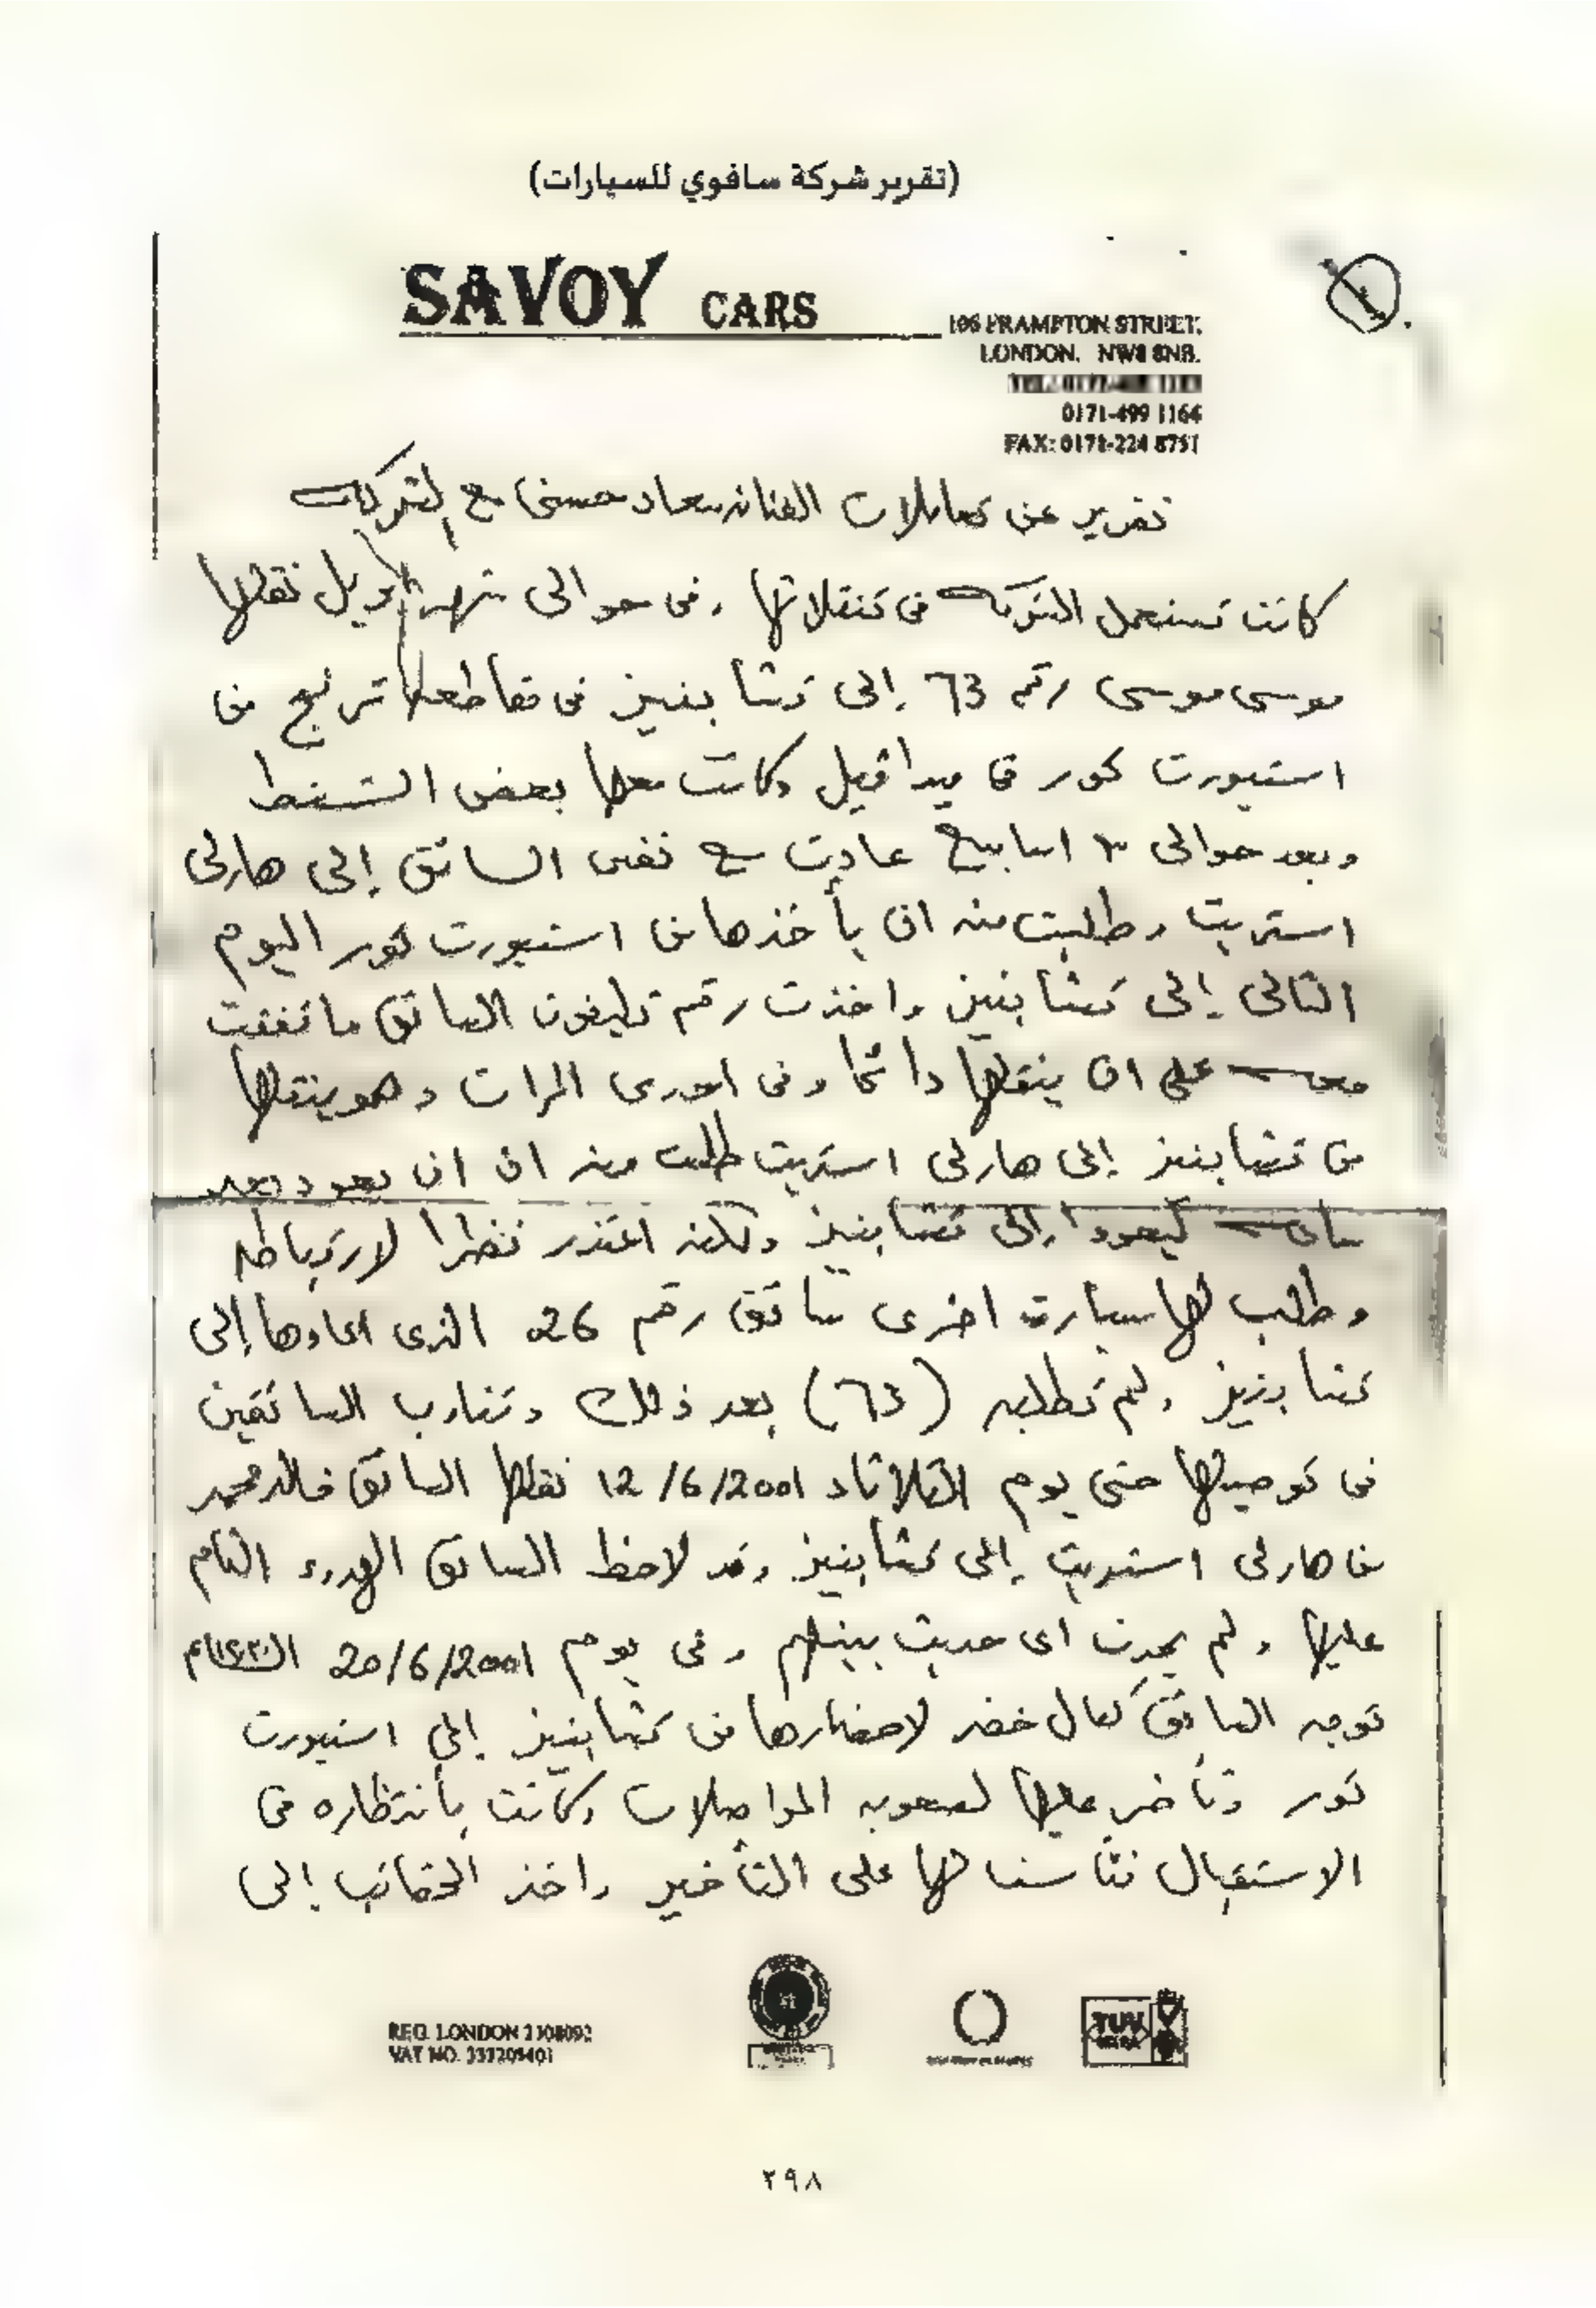 (تقرير شركة سافوي للسيارات)
SAVOY CARS
106 FRAMPTON STREET,
LONDON. NW8 8NB.
0171-499 1164
FAX: 0171-224 8751
تقرير عن تعاملات الفنانه سعاد حسنى مع الشركه
كانت تستعمل الشركه فى تنقلاتها وفى حوالى شهر ابريل نقلها
موسى موسى رقم 63 إلى تشابنيز فى مقاطعة ترنج من
استيورت كور فى ميدافيل وكانت معها بعض الشنط
وبعد حوالى ٣ اسابيع عادت مع نفس السائق إلى هارلى
استريت وطلبت منه ان يأخذها من استيورت كور اليوم
التالى إلى تشابنيز واخذت رقم تليفون السائق واتفقت
معه على ان ينقلها دائما وفى احدى المرات وهو ينقلها
من تشابنيز إلى هارلى استريت طلبت منه ان ان يعود بعد
ليعودا إلى تشابنيز ولكنه اعتذر نظرا لارتباطه
وطلب لها سيارة اخرى سائق رقم 26 الذى اعادها إلى
تشابنيز ولم تطلبه (63) بعد ذلك وتناوب السائقين
فى توصيلها حتى يوم الثلاثاء 12/6/2001 نقلها السائق خالد محمد
من هارلى استريت إلى تشابنيز وقد لاحظ السائق الهدوء التام
عليها ولم يحدث اى حديث بينهم وفى يوم 20/6/2001
توجه السائق كمال خضر لاحضارها من تشابنيز إلى استيورت
كور وتأخر عليها لصعوبه المواصلات وكانت بأنتظاره فى
الاستقبال لها على التأخير واخذ الحقائب إلى
REG. LONDON 2108092
VAT NO.
TUV
٢٩٨